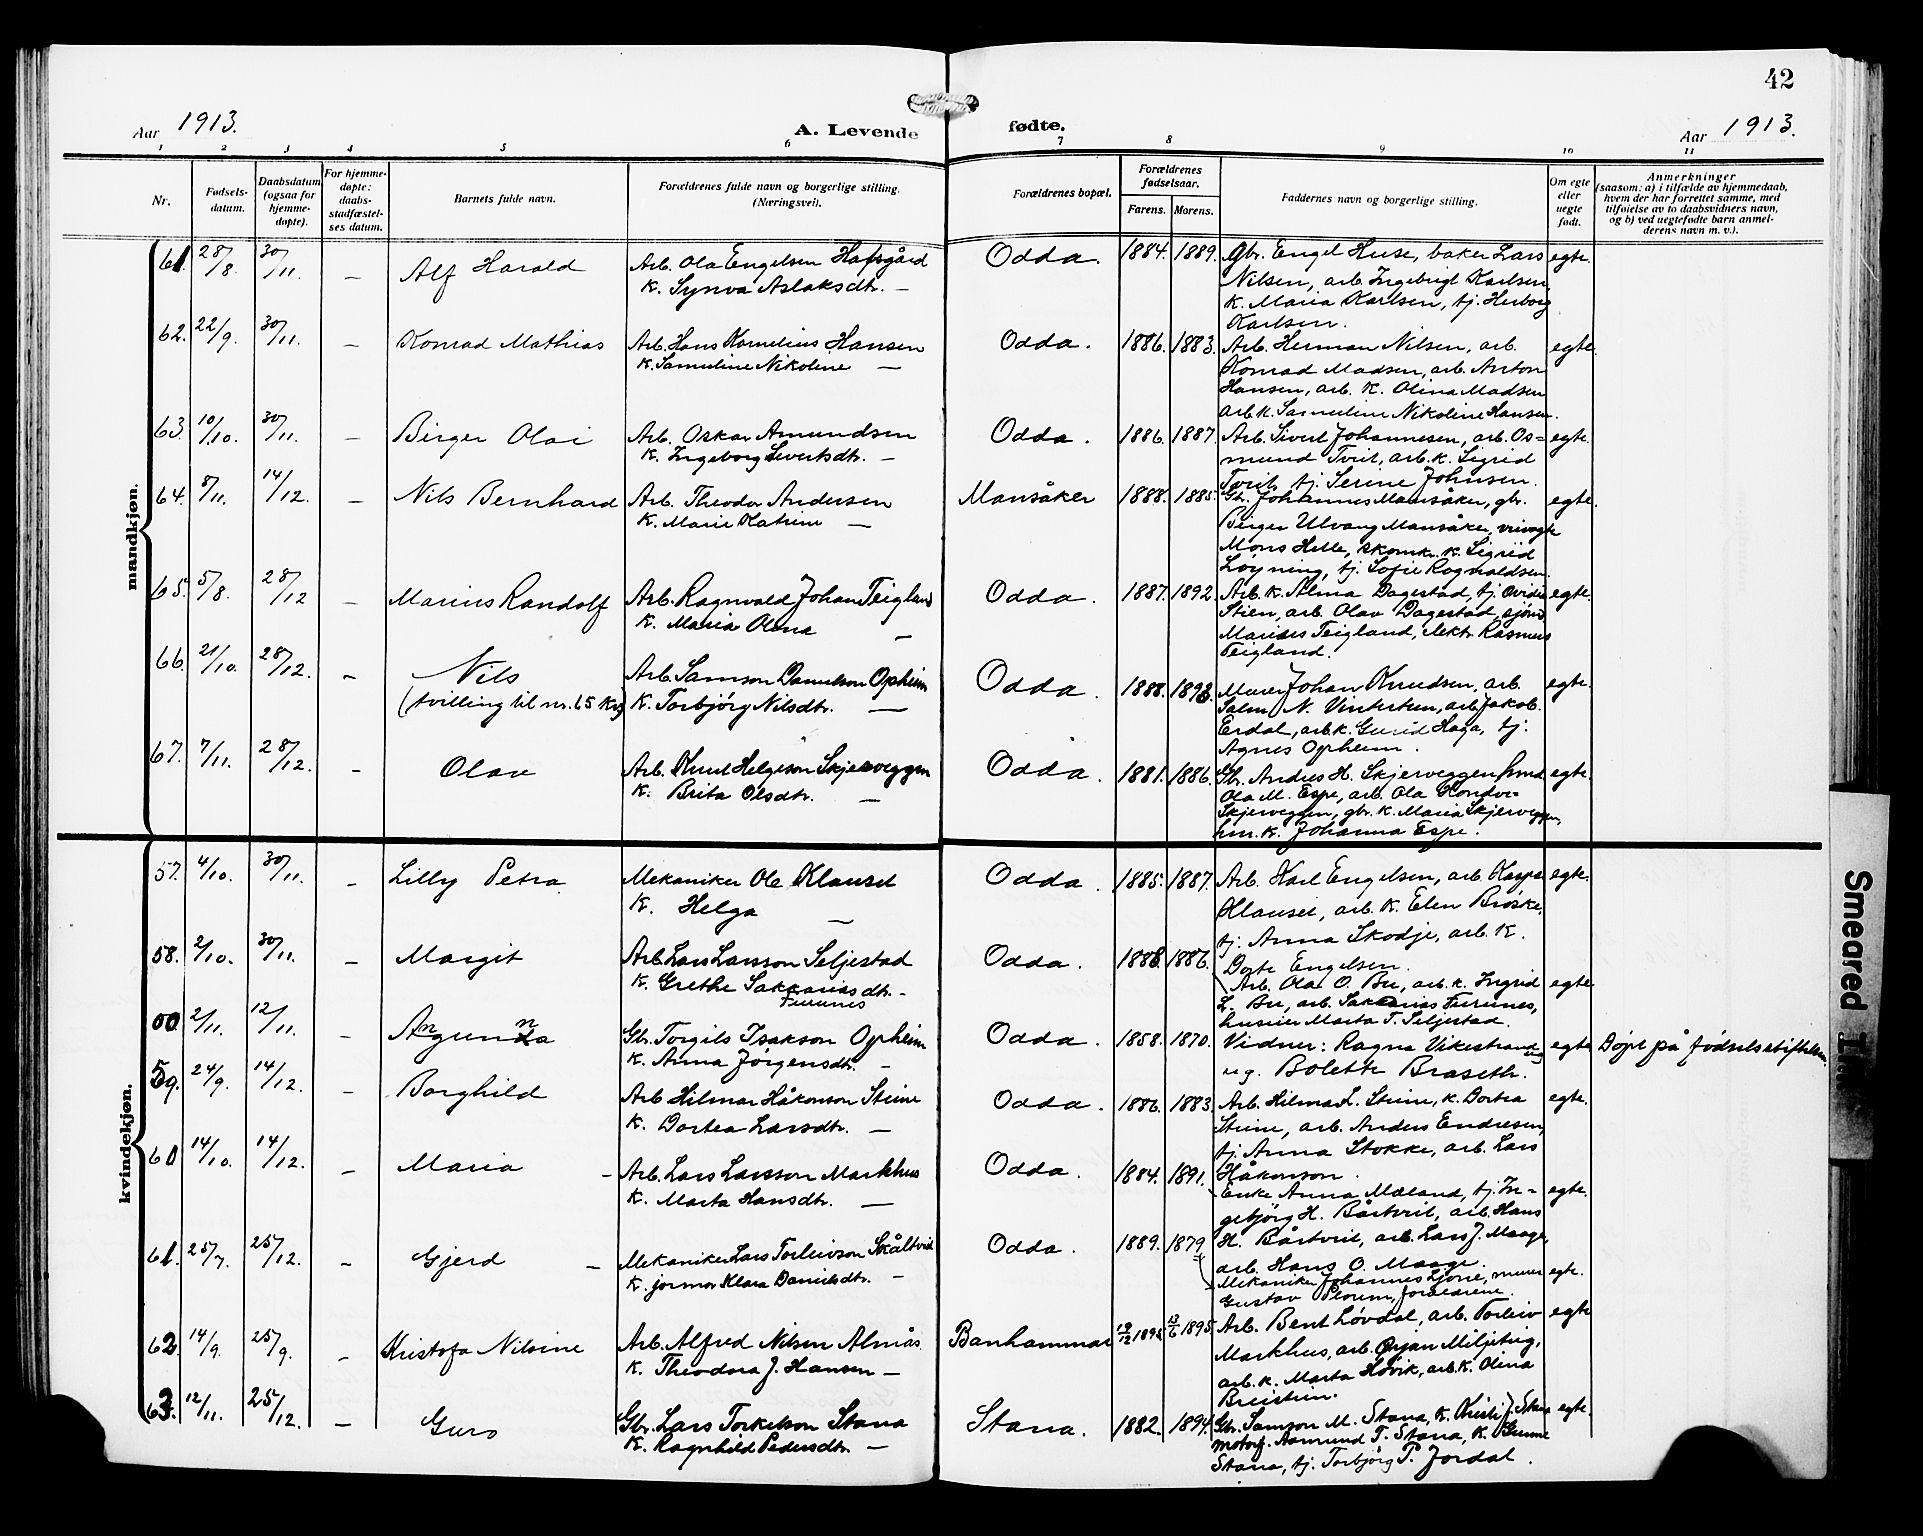 42
Aar 1913.
A. Levende fødte.
Aar 1913.
1 2 3 4 5 6 7 8 9 10 11
Nr.
Fødsels-
datum.
Daabsdatum
(ogsaa for
hjemme-
døpte).
For hjemme-
døpte:
daabs-
stadfæstel-
ses datum.
Barnets fulde navn.
Forældrenes fulde navn og borgerlige stilling.
(Næringsvei).
Forældrenes bopæl.
Forældrenes
fødselsaar.
Farens. Morens.
Faddernes navn og borgerlige stilling.
Om egte
eller
uegte
født.
Anmerkninger
(saasom: a) i tilfælde av hjemmedaab,
hvem der har forrettet samme, med
tilføielse av to daabsvidners navn,
og b) ved uegtefødte barn anmel-
derens navn m. v.).
mandkjøn.
61. 28/8. 30/11. – Alf Harald Arb. Ola Engelsen Hafsgård Odda. 1884. 1889. Gbr. Engel Huse, baker Lars egte.
K. Synva Aslaksdtr. – Nilsen, arb. Ingebrigt Karlsen,
K. Maria Karlsen, tj. Herborg
Karlsen.
62. 22/9. 30/11. – Konrad Mathias Arb. Hans Kornelius Hansen Odda. 1886. 1883. Arb. Herman Nilsen, arb. egte.
K. Samuline Nikoline – Konrad Madsen, arb. Anton
Hansen, arb. K. Olina Madsen
arb. K. Samuline Nikoline Hansen.
63. 10/10. 30/11. – Birger Olai Arb. Oskar Amundsen Odda. 1886. 1887. Arb. Sivert Johannesen, arb. Os= egte.
K. Ingeborg Sivertsdtr. – mund Tveit, arb. K. Sigrid
Tveit, tj. Serine Johnsen.
64. 8/11. 14/12. – Nils Bernhard Arb. Theodor Andersen Mansåker 1888. 1885. Gb. Johannes Mansåker, gbr. egte.
K. Marie Katrine – Birger Ulvang Mansåker,
Mons Helle, skomk. K. Sigrid
Løyning, tj. Sofie Ragnvaldsen.
65. 5/8. 28/12 – Marius Randolf Arb. Ragnvald Johan Teigland Odda. 1887. 1892. Arb. K. Alma Dagestad, tj. egte.
K. Maria Olena – Stien, arb. Olav Dagestad, sjøm.
Teigland, elektr. Rasmus
Teigland.
66. 21/10. 28/12. – Nils Arb. Samson Danielson Opheim Odda. 1888. 1893. Murer Johan Knudsen, arb. egte.
(tvilling til nr. 65 kv.) K. Torbjørg Nilsdtr. – N. Vintertun, arb. Jakob
Erdal, arb. K. Gurid Haga, tj.
Agnes Opheim.
67. 7/11. 28/12. – Olav Arb. Knut Helgeson Skjerveggen Odda. 1881. 1886. Gb. Andres H. Skjerveggen, egte.
K. Brita Olsdtr. – Ola M. Espe, arb. Ola
Skjerveggen, gbr. K. Maria Skjerveggen,
K. Johanna Espe.
kvindekjøn.
57. 4/10. 30/11. – Lilly Petra Mekaniker Ole Klauset Odda. 1885. 1887. Arb. Karl Engelsen, arb. egte.
K. Helga – Klauset, arb. K. Elen Brøske,
tj. Anna Skodje, arb. K.
Dorte Engelsen.
58. 2/10. 30/11. – Margit Arb. Lars Larsson Seljestad Odda. 1888. 1886. Arb. Ola O. Bu, arb. K. Ingrid egte
K. Grethe Sakkariasdtr. – L. Bu, arb. Sakkarias Furunes,
Furunes Marta T. Seljestad.
00 2/11. 12/11. – Angunna Gb. Torgils Isakson Opheim Odda. 1858. 1870. Vidner: Ragna Vikestrand egte Døpt på fødselsstiftelsen.
K. Anna Jørgensdtr. – og Bolette Braseth.
59. 24/9. 14/12. – Borghild Arb. Hilmar Håkonson Steine Odda. 1886. 1883. Arb. Hilmar L. Steine, K. Dortea egte.
K. Dortea Larsdtr. – Steine, arb. Anders Endresen,
tj. Anna Stokke, arb. Lars
Håkonson.
60 14/10. 14/12. – Maria – Arb. Lars Larsson Markhus Odda. 1884. 1891. Enke Anna Mæland, tj. In= egte.
K. Marta Hansdtr. – gebjørg H. Båstveit, arb. Hans
H. Båstveit, arb. Lars J. Maage,
arb. Hans O. Maage.
61. 25/7. 25/12. – Gjerd – Mekaniker Lars Torleivson Skåltveit Odda. 1889. 1879 Mekaniker Johannes Ljone, murer egte.
K. jormor Klara Danielsdtr. – Gustav, forældrene.
62 14/9. 25/9. – Kristofa Nilsine Arb. Alfred Nilsen Almås Banhammar 19/12 1895 13/6 1895. Arb. Bent Løvdal, arb. Torleiv egte
K. Theodora J. Hansen – Markhus, arb. Ørjan Miljeteig,
arb. K. Marta Høvik, arb. K. Olina
Breistein.
63. 12/11. 25/12. – Guro Gbr. Lars Torkelson Stana Stana. 1882. 1894. Gbr. Samson M. Stana, K. Kristi J. Stana egte.
K. Ragnhild Pedersdtr. – Aamund T. Stana, K. Gunne
Stana, tj. Torbjørg P. Jordal.
Smeared